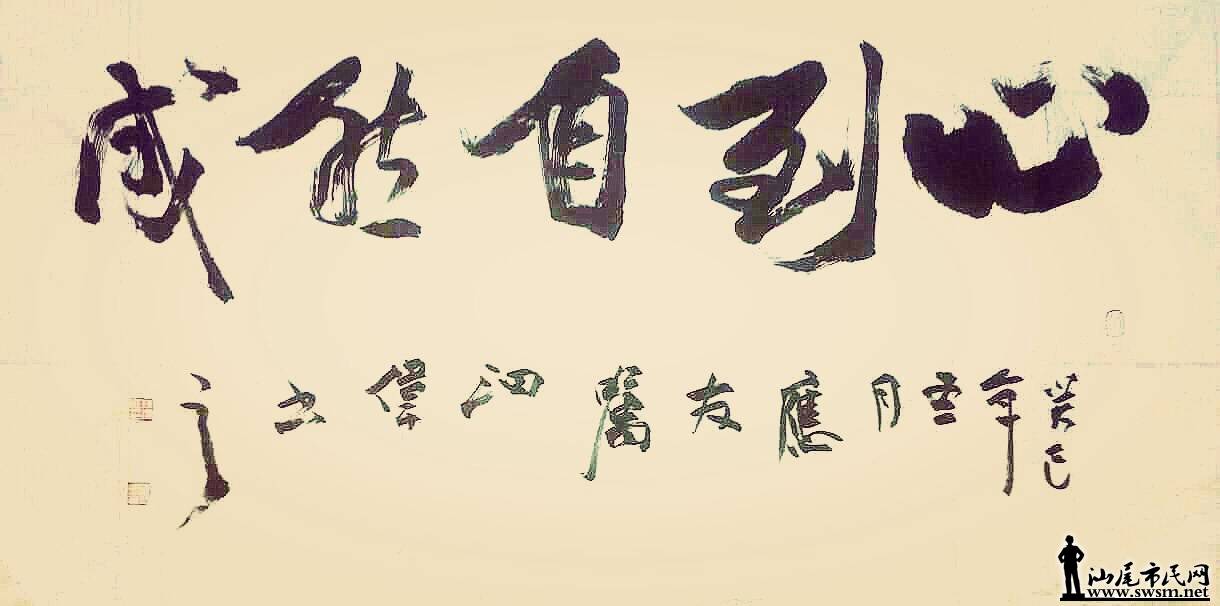 心到自然成
癸巳年 月應友 泗偉書
汕尾市民网
www.swsm.net